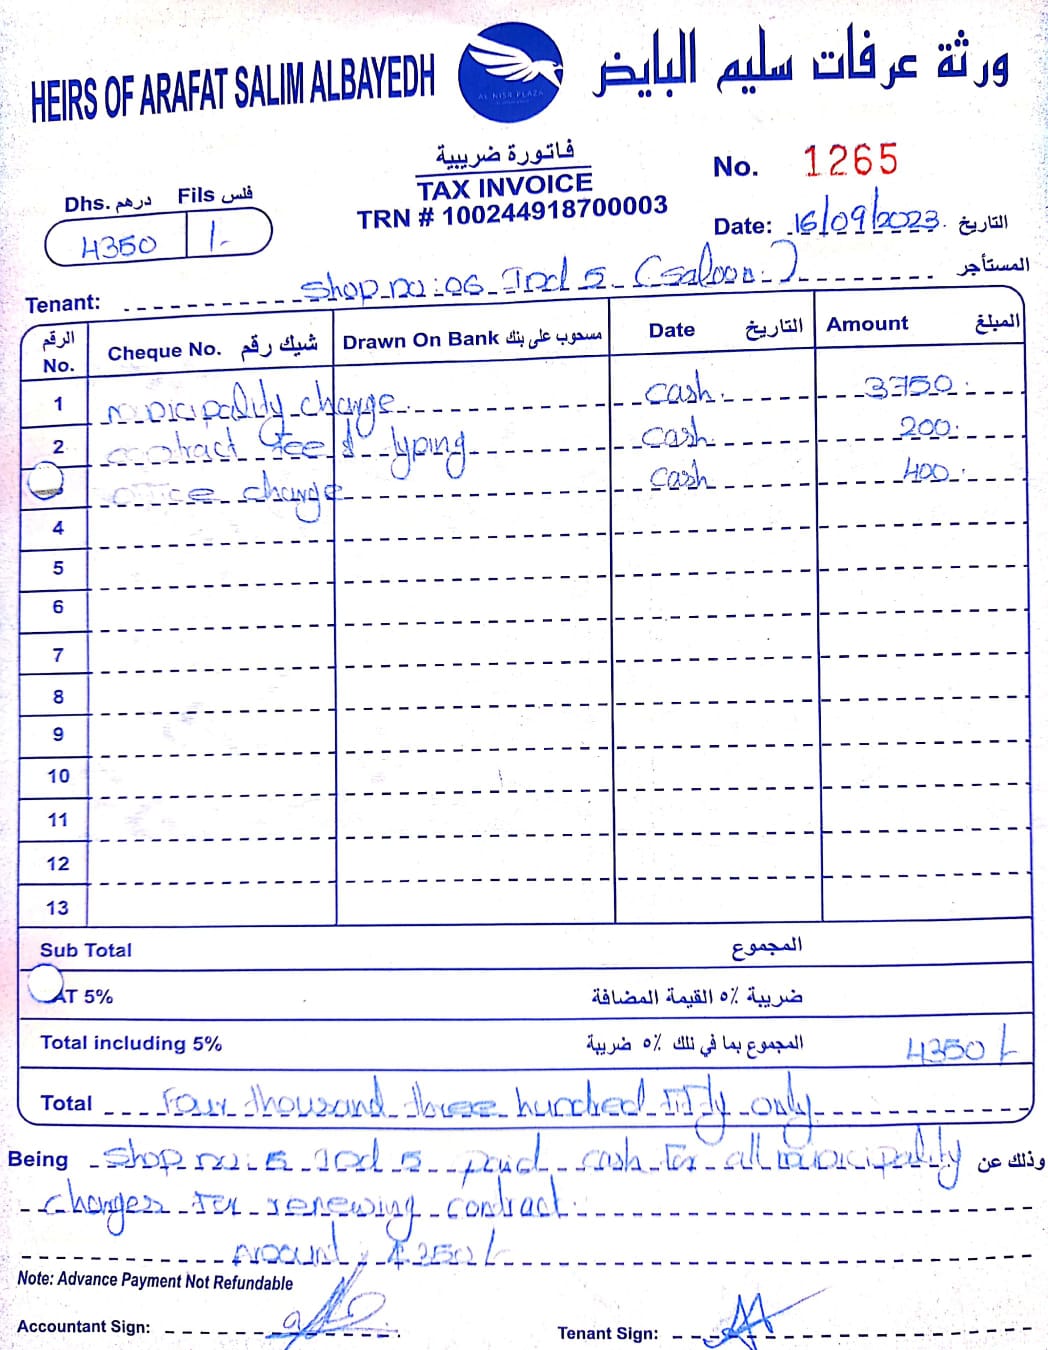 HEIRS OF ARAFAT SALIM ALBAYEDH
AL NISR PLAZA
ورثة عرفات سليم البايض
فاتورة ضريبية
TAX INVOICE
TRN # 100244918700003
No. 1265
Dhs. درهم Fils فلس
4350 /-
Date: 16/09/2023 التاريخ
Tenant: Shop no: 06 Ind 5 (saloon) المستأجر
الرقم No. Cheque No. شيك رقم Drawn On Bank مسحوب على بنك Date التاريخ Amount المبلغ
1 municipality charge cash. 3750.
2 contract fee & typing cash. 200.
office charge cash 400.
4
5
6
7
8
9
10
11
12
13
Sub Total المجموع
AT 5% ضريبة ٥٪ القيمة المضافة
Total including 5% المجموع بما في تلك ٥٪ ضريبة 4350/-
Total Four thousand three hundred fifty only
Being Shop no: 6 Ind 5 paid cash for all municipality وذلك عن
charges for renewing contract.
Amount: 4350/-
Note: Advance Payment Not Refundable
Accountant Sign:
Tenant Sign: